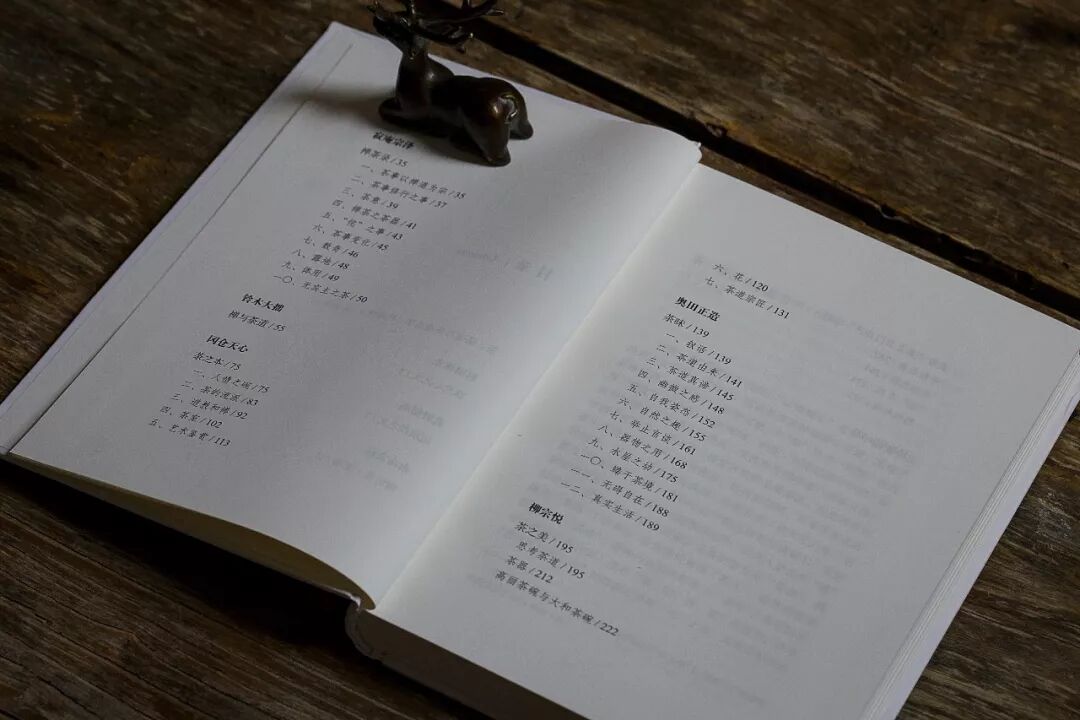 寂庵宗泽
禅茶录/35
一、茶事以禅道为宗/35
二、茶事修行之事/37
三、茶意/39
四、禅茶之茶器/41
五、“侘”之事/43
六、茶事变化/45
七、数奇/46
八、露地/48
九、体用/49
一〇、无宾主之茶/50
铃木大拙
禅与茶道/55
冈仓天心
茶之本/75
一、人情之碗/75
二、茶的流派/83
三、道教和禅/92
四、茶室/102
五、艺术鉴赏/113
六、花/120
七、茶道宗匠/131
奥田正造
茶味/139
一、叙话/139
二、茶道由来/141
三、茶道真谛/145
四、幽微之感/148
五、自我姿态/152
六、自然之趣/155
七、举止言谈/161
八、器物之用/168
九、水屋之劫/175
一〇、臻于茶境/181
一一、无碍自在/188
一二、真实生活/189
柳宗悦
茶之美/195
思考茶道/195
茶器/212
高丽茶碗与大和茶碗/222